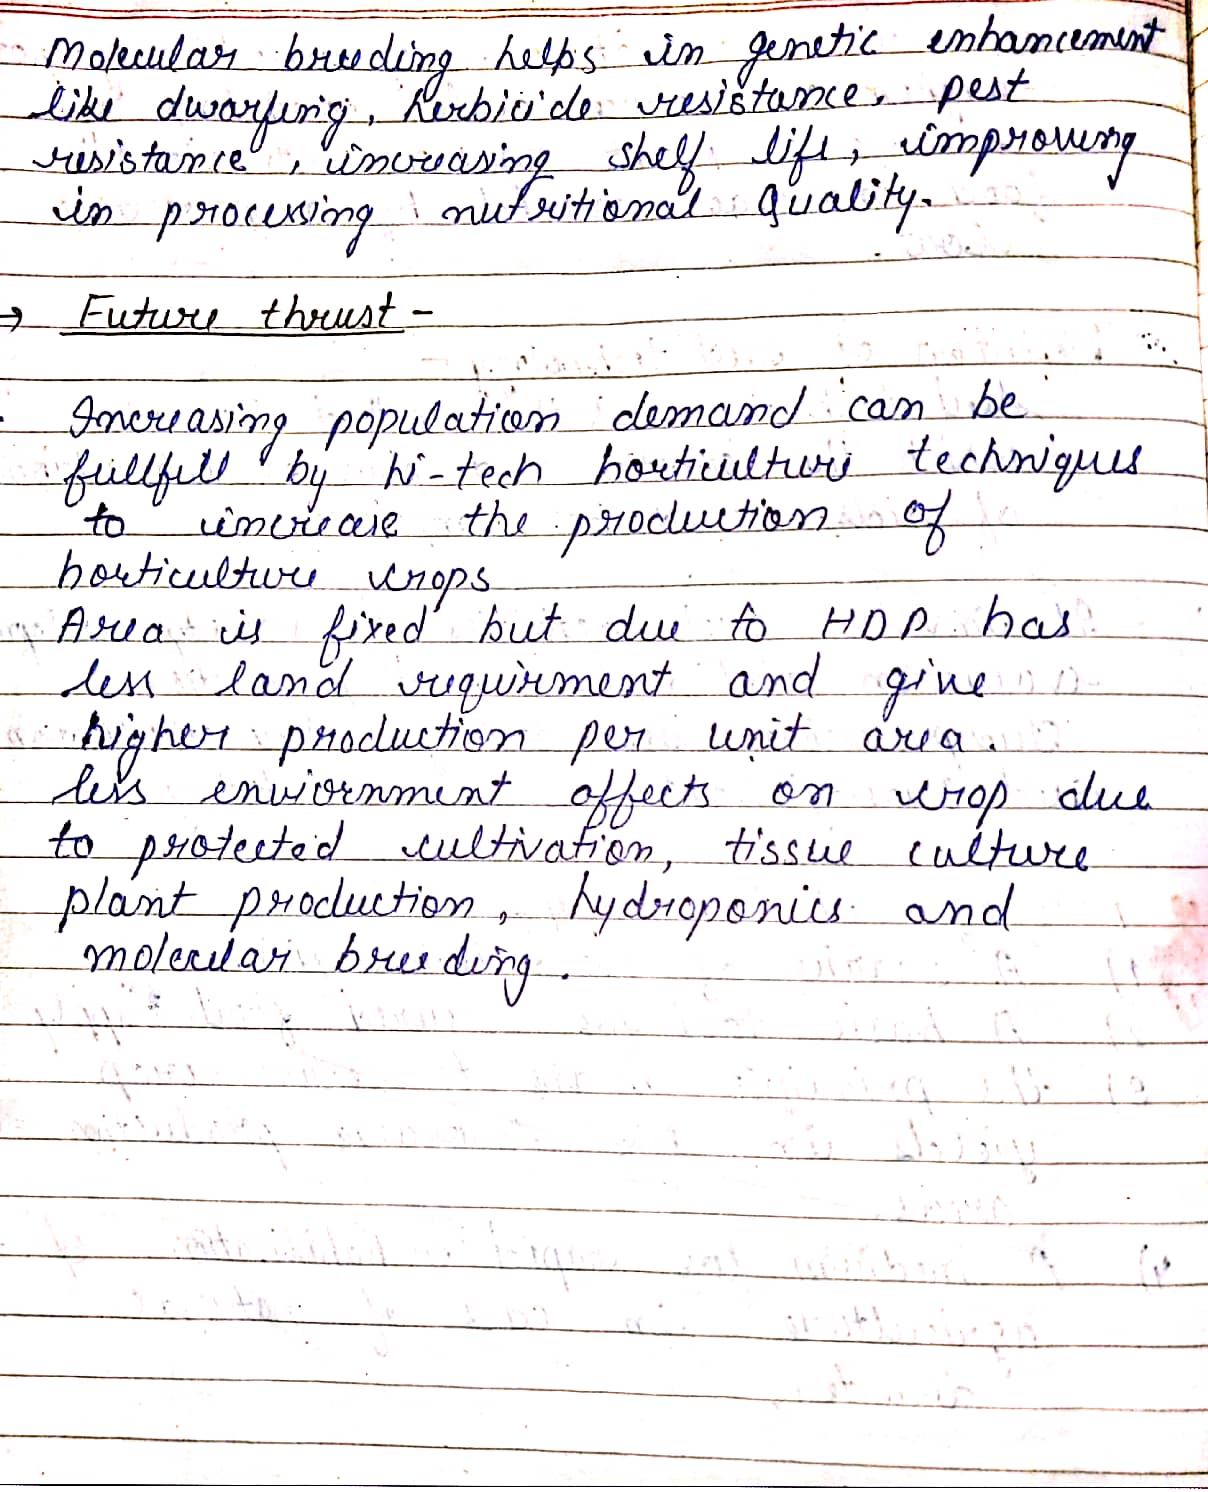 Molecular breeding helps in genetic enhancement
like dwarfing, herbicide resistance, pest
resistance, increasing shelf life, improving
in processing nutritional quality.
→ Future thrust -
Increasing population demand can be
fullfill by hi-tech horticulture techniques
to increase the production of
horticulture crops
Area is fixed but due to HDP has
less land requirment and give
higher production per unit area.
less enviornment affects on crop due
to protected cultivation, tissue culture
plant production, hydroponics and
molecular breeding.